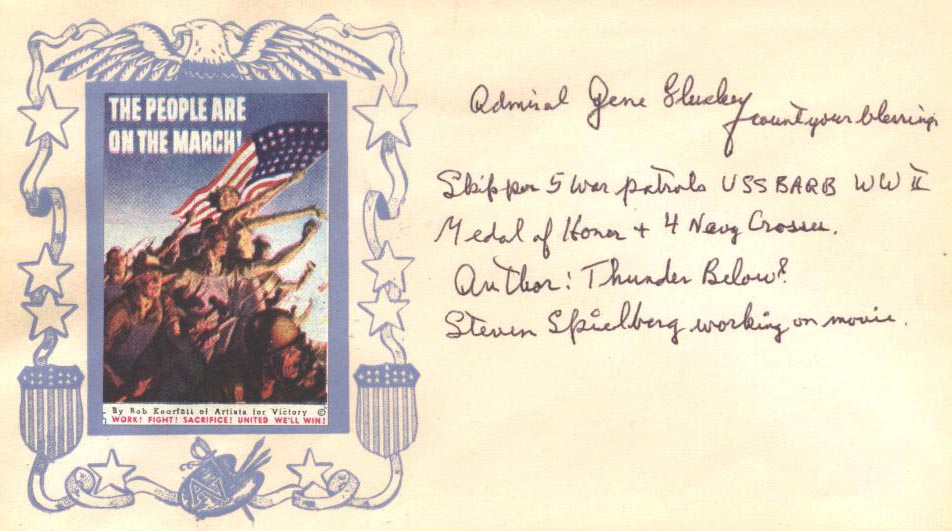 THE PEOPLE ARE
ON THE MARCH!
By Bob Kearfott of Artists for Victory ©
WORK! FIGHT! SACRIFICE! UNITED WE'LL WIN!
AV
Admiral Gene Fluckey
count your blessings
Skipper 5 War patrols USS BARB WW II
Medal of Honor + 4 Navy Crosses.
Author: Thunder Below!
Steven Spielberg working on movie.